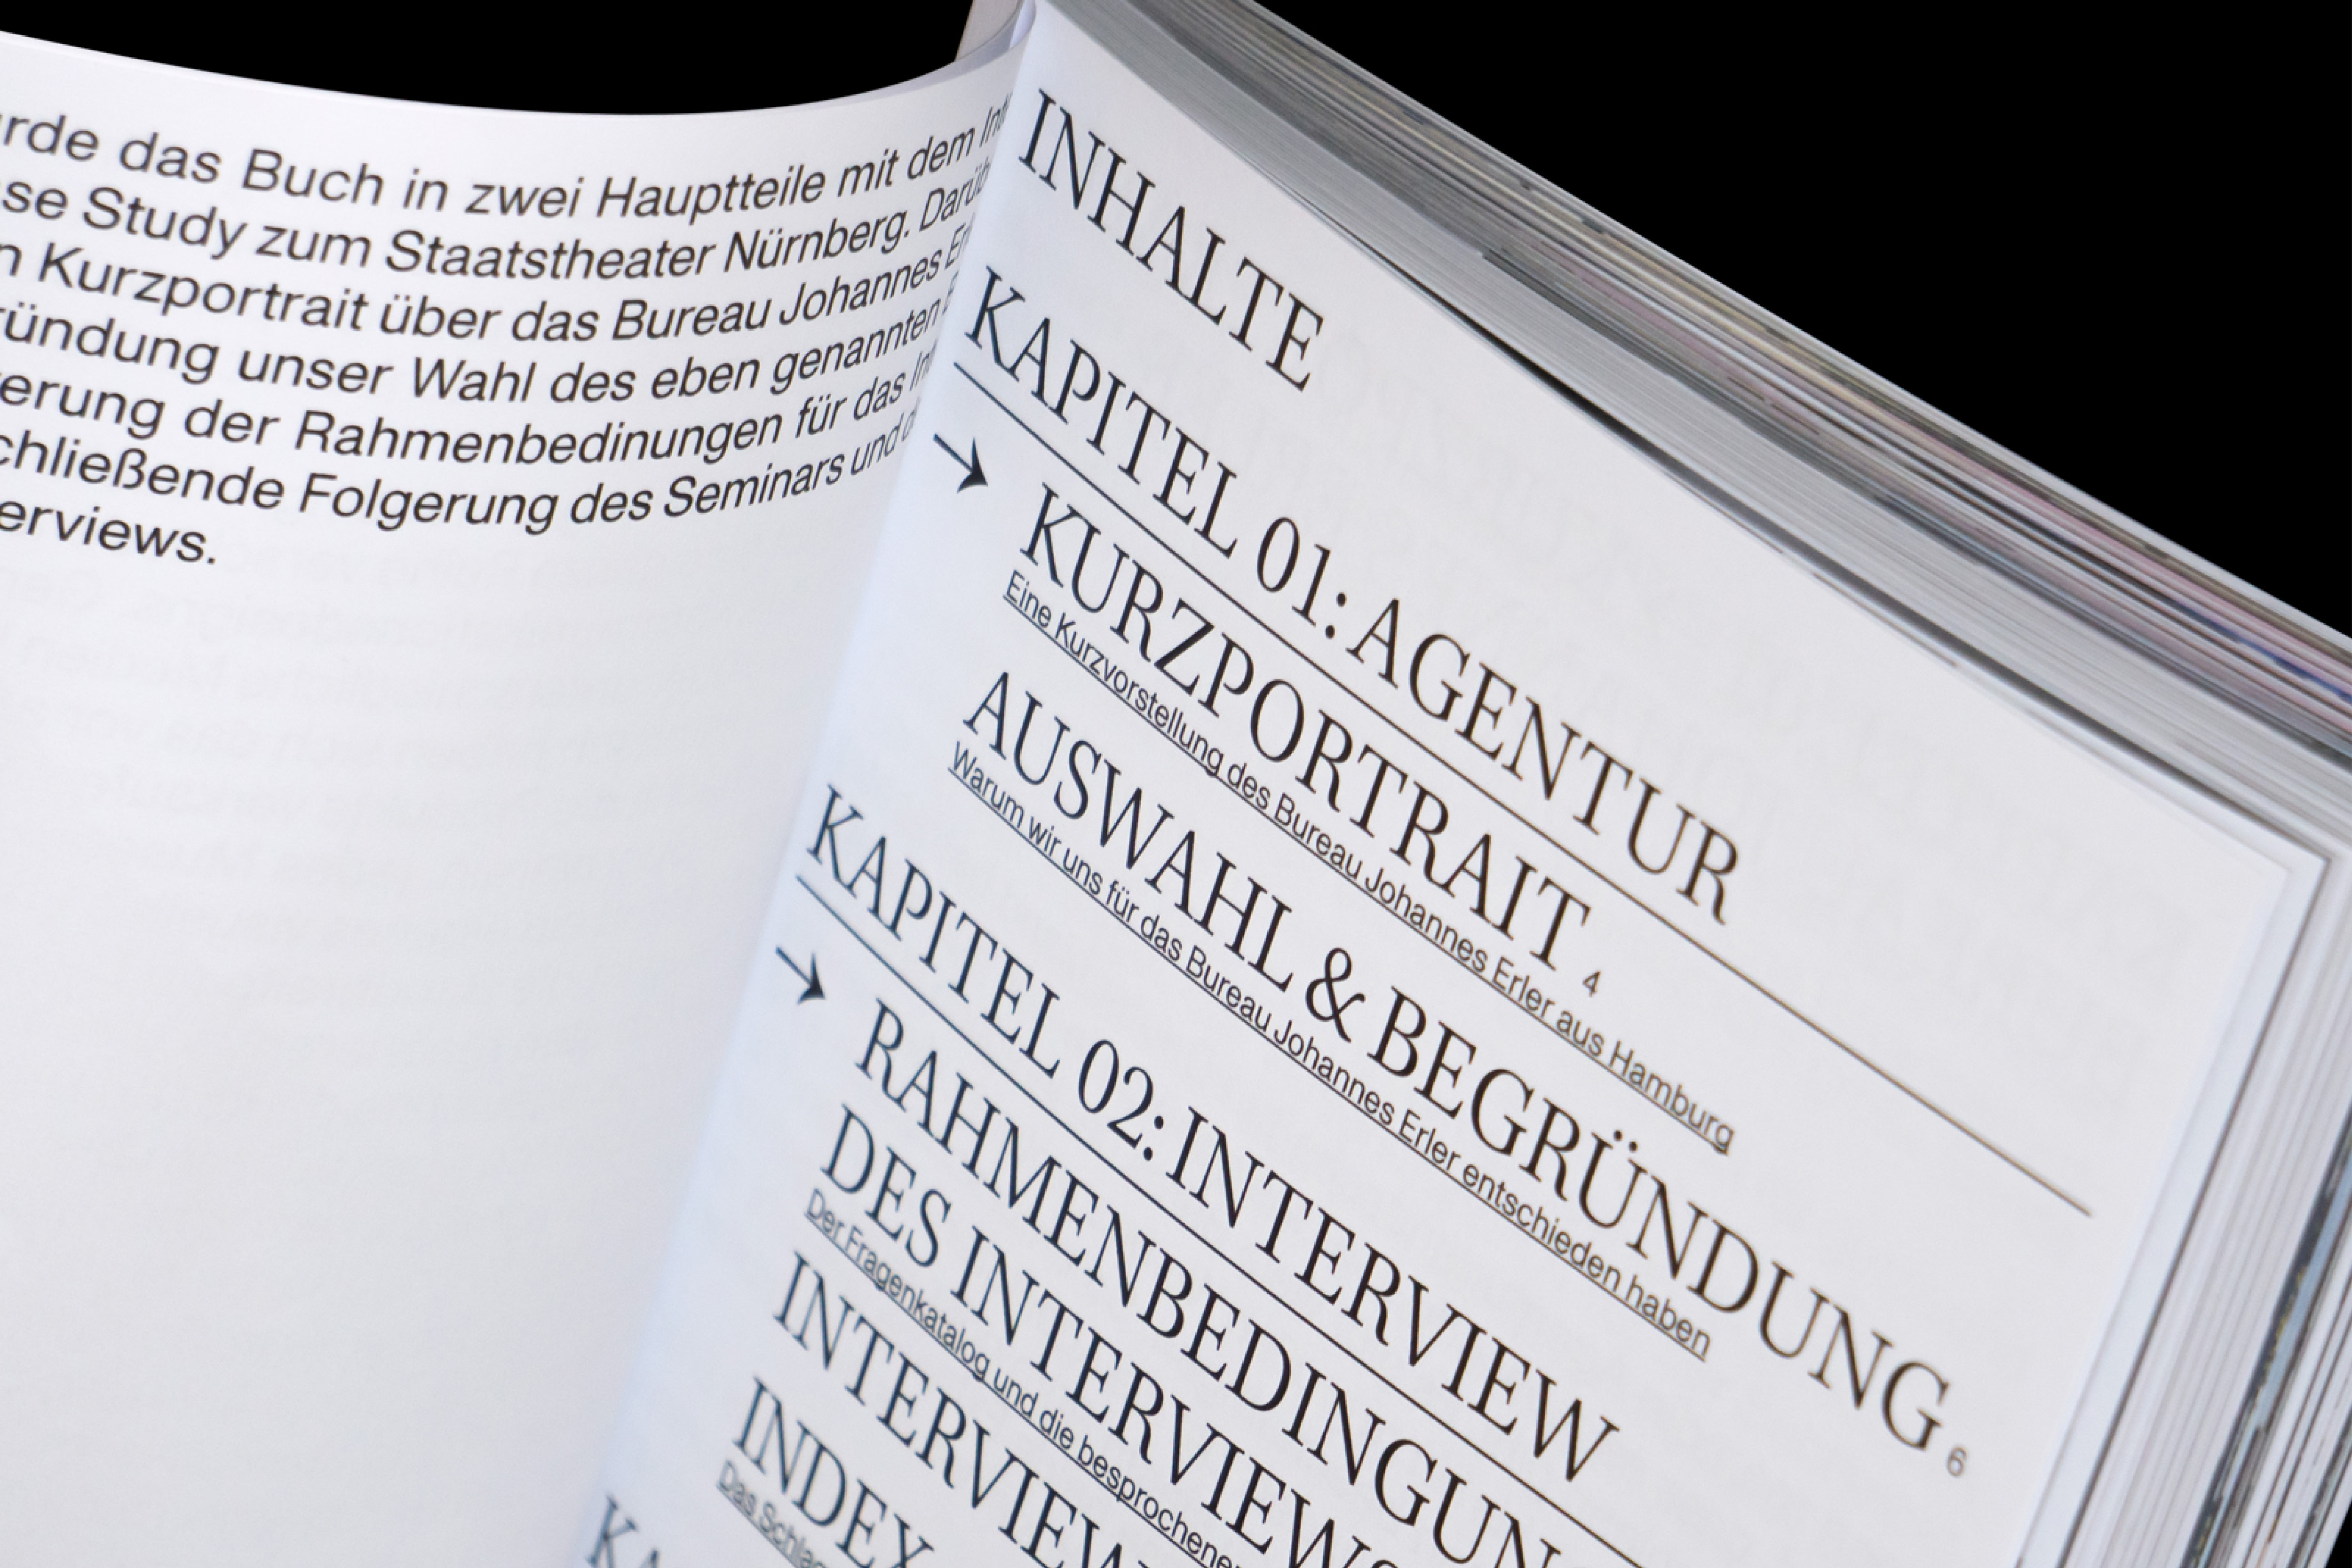 das Buch in zwei Hauptteile mit dem
Study zum Staatstheater Nürnberg.
Kurzportrait über das Bureau Johannes
unser Wahl des eben genannten
der Rahmenbedinungen für das
Folgerung des Seminars und
INHALTE
KAPITEL 01: AGENTUR
→ KURZPORTRAIT 4
Eine Kurzvorstellung des Bureau Johannes Erler aus Hamburg
AUSWAHL & BEGRÜNDUNG 6
Warum wir uns für das Bureau Johannes Erler entschieden haben
KAPITEL 02: INTERVIEW
→ RAHMENBEDINGUN
DES INTERVIEWS
Der Fragenkatalog und die besprochene
INTERVIEW
INDEX
Das